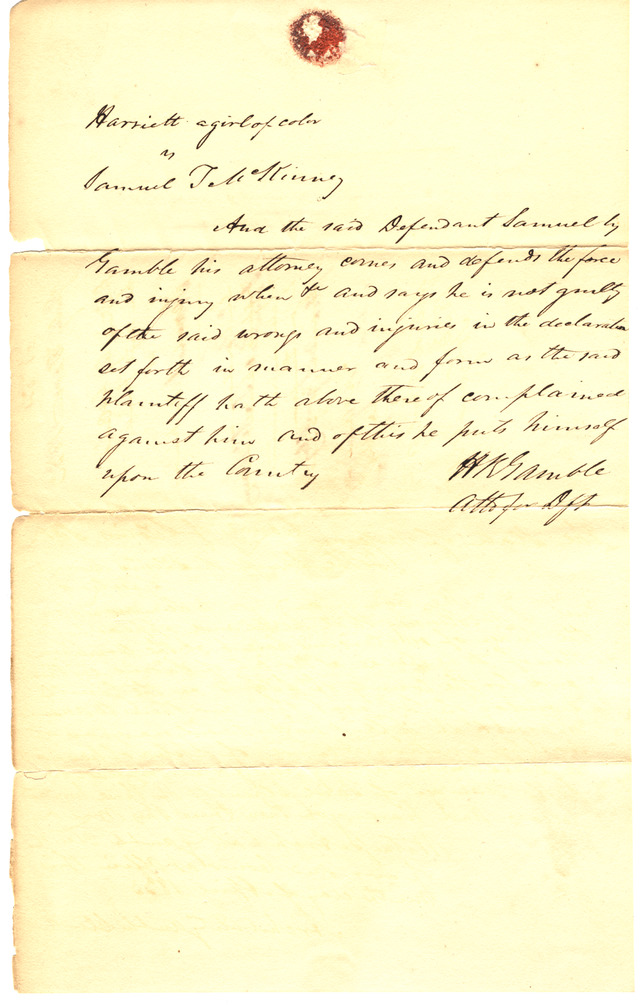 Harriett a girl of color
vs
Samuel T McKinney
And the said Defendant Samuel by
Gamble his attorney comes and defends the force
and injury when &c and says he is not guilty
of the said wrongs and injuries in the declaration
set forth in manner and form as the said
plaintiff hath above thereof complained
against him and of this he puts himself
upon the Country
H R Gamble
Atto for Dft